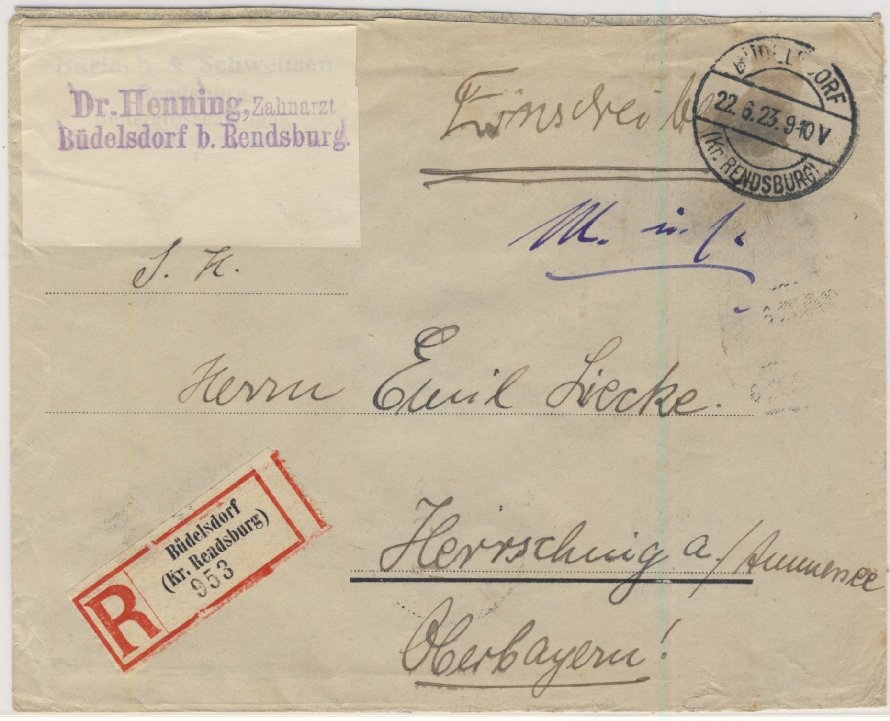 Dr. Henning, Zahnarzt
Büdelsdorf b. Rendsburg.
Einschreiben
BÜDELSDORF
22.6.23.9-10V
(Kr. RENDSBURG)
M. u. f.
S. H.
Herrn Emil Liecke.
Büdelsdorf
(Kr. Rendsburg)
953
R
Herrsching a/Ammersee
Oberbayern!